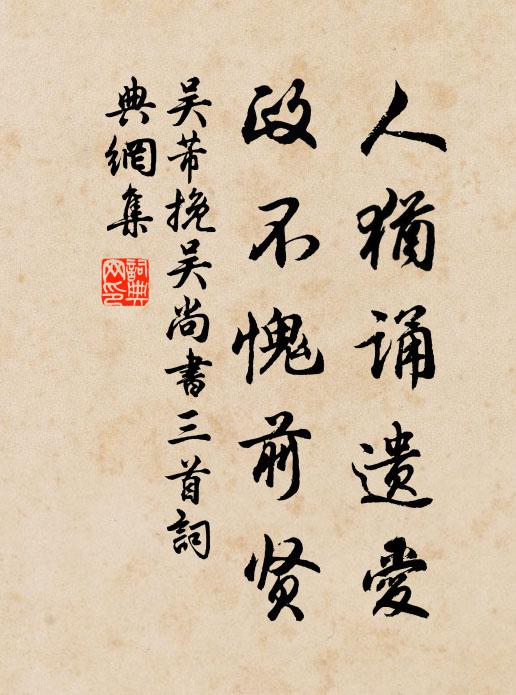 人犹诵遗爱
政不愧前贤
吴芾挽吴尚書三首詞
典網集
詞典網印